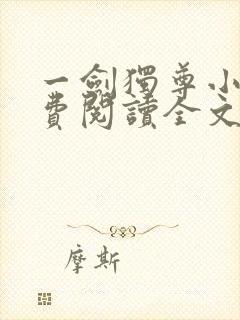 一劍獨尊小
費閱讀全文
摩斯